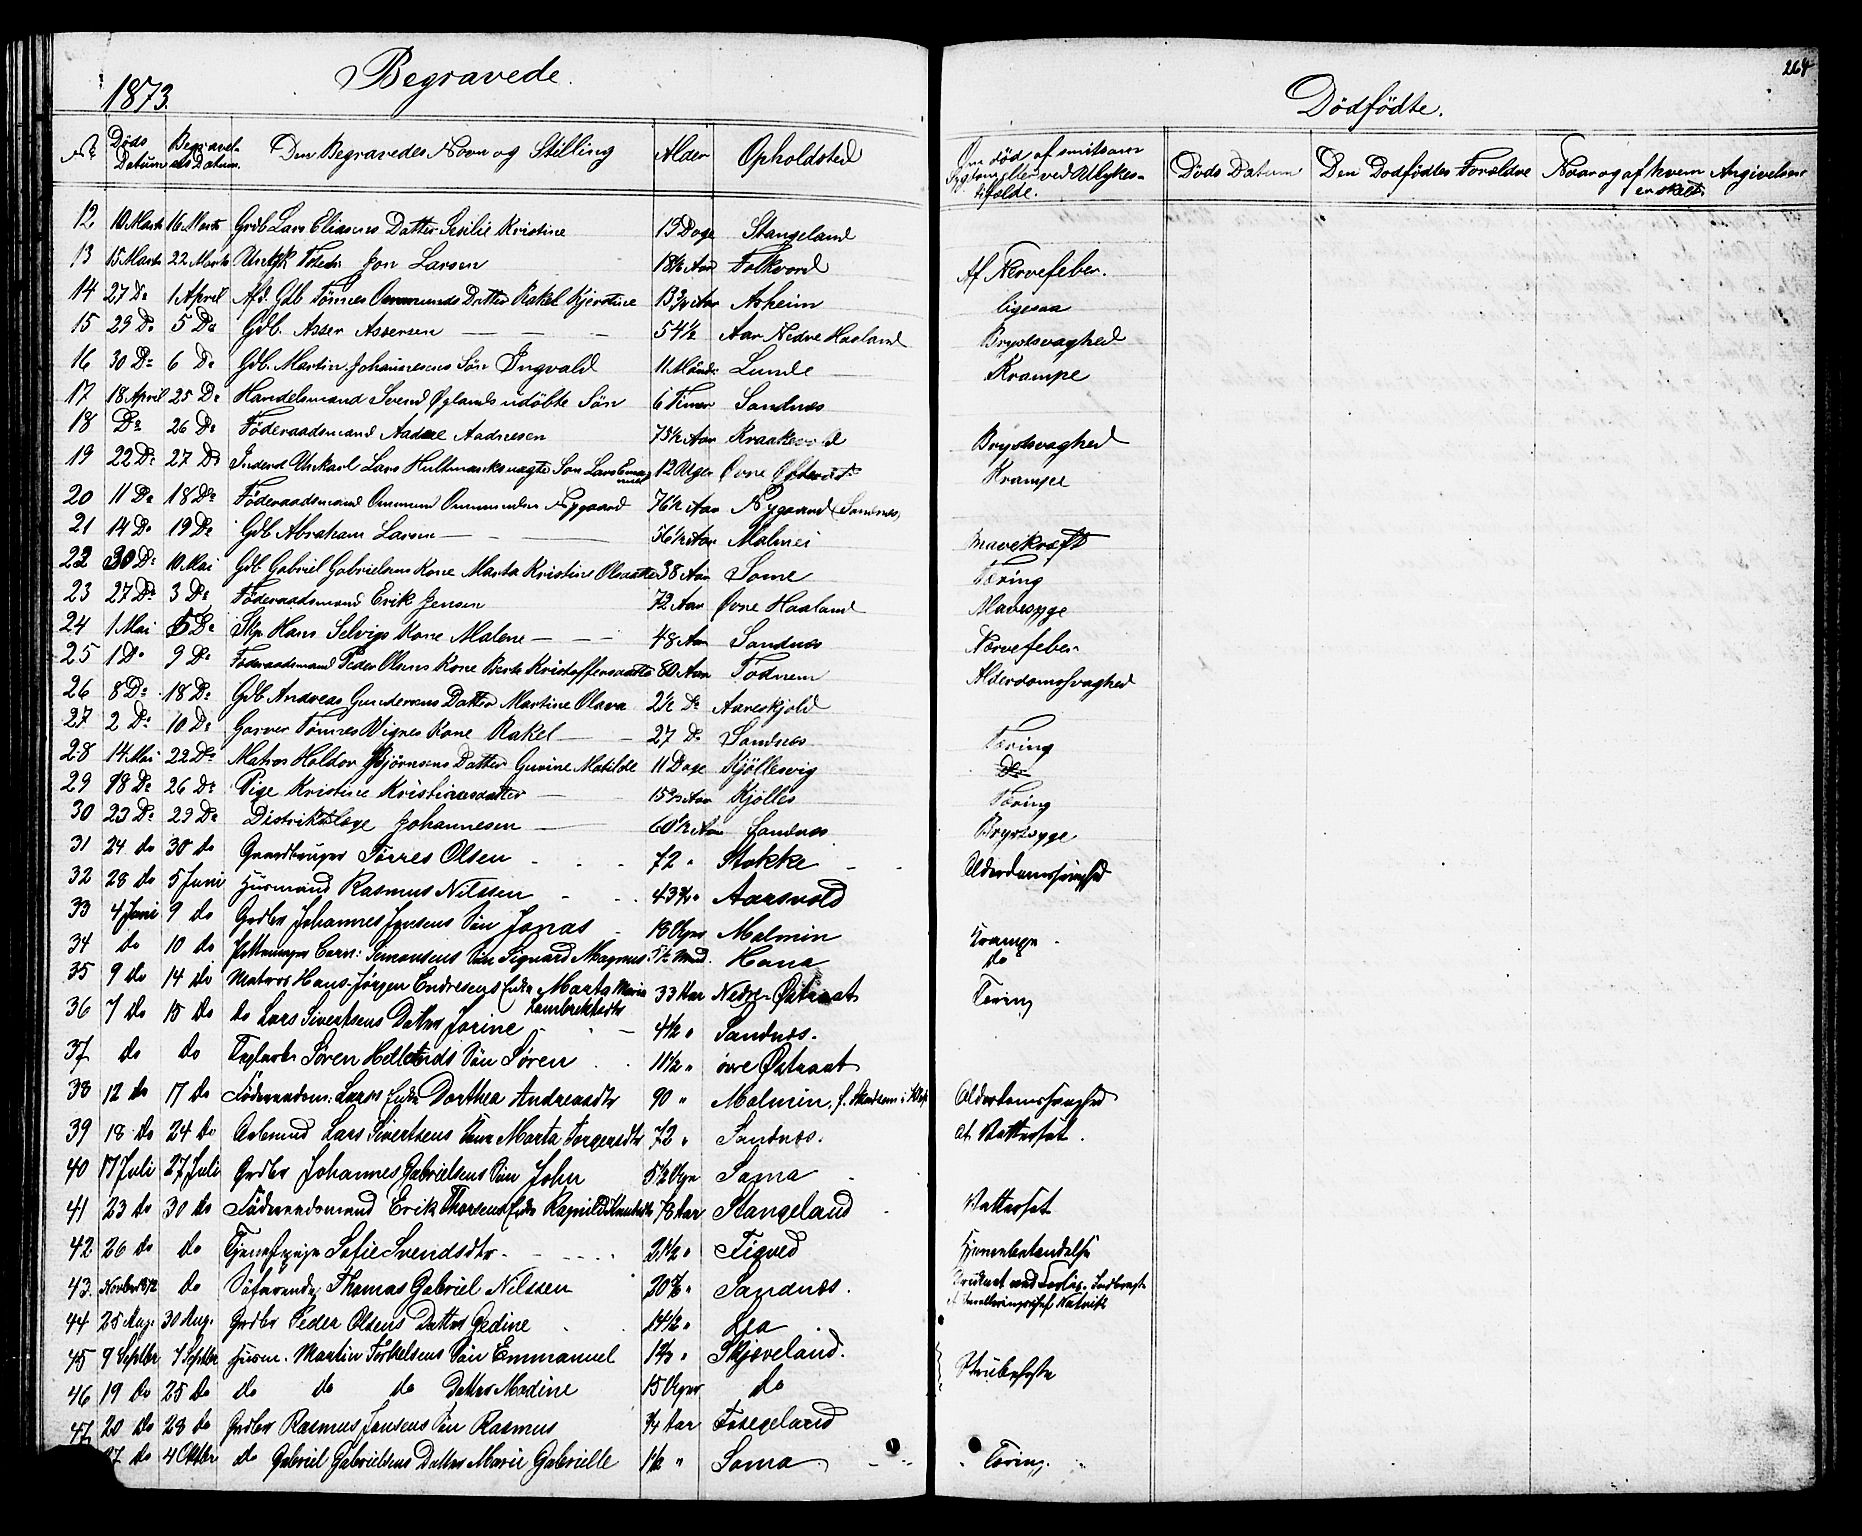 264
1873.
Begravede.
Dödfödte.
No Döds Datum Begravelses Datum. Den Begravedes Navn og Stilling Alder Opholdsted
Om död af smitsom Sygdom eller ved Ulykkestilfælde. Döds Datum Den Dodfödtes Forældre Naar og af hvem Angivelsen er skeet.
12 10 Marts 16 Marts Grdb Lars Eliasens Datter Sesilie Kristine 13 Dage Stangeland
13 15 Marts 22 Marts Jon Larsen 18½ Aar Folkvord Af Nervefeber.
14 27 Do 1 April Afd. Gdb. Tönnes Ommunds Datter Rakel Kjerstine 13¾ Aar Asheim ligesaa
15 29 Do 5 Do Gdb. Asser Assersen 54½ Aar Nedre Haaland Brystsvaghed
16 30 Do 6 Do Gdb. Martin Johannesens Sön Ingvald 11 Maaned Lunde Krampe
17 18 April 25 Do Handelsmand Svend Öglands udöbte Sön 6 Timer Sandnæs
18 Do 26 Do Föderaadsmand Aadne Aadnesen 75½ Aar Kraakevold Brystsvaghed
19 22 Do 27 Do Lars Hultmarks Son Lars Emanuel 12 Uger Övre Krampe
20 11 Do 18 Do Föderaadsmand Ommund Ommundsen Nygaard 76½ Aar Nygaard (Sandnæs)
21 14 Do 19 Do Gdb Abraham Larsen 76½ Aar Malmei Mavekræft
22 30 Do 10 Mai Gdb Gabriel Gabrielsens Kone Marta Kristine Olsdatter 38 Aar Some Tæring
23 27 Do 3 Do Föderaadsmand Erik Jensen 72 Aar Övre Haaland Mavesyge
24 1 Mai 5 Do Skp. Hans Selvigs Kone Malene 48 Aar Sandnæs Nervefeber
25 1 Do 9 Do Föderaadsmand Peder Olsens Kone Berte Kristoffersdatter 80 Aar Fodnem Alderdomssvaghed
26 8 Do 18 Do Gdb Andreas Gundersens Datter Martine Olava 2½ Do Aareskjold
27 2 Do 10 Do Garver Tönnes Wignes Kone Rakel 27 Do Sandnæs Tæring
28 14 Mai 22 Do Matros Haldor Björnsens Datter Gurine Matilde 11 Dage Kjöllesvig Do
29 18 Do 26 Do Pige Kristine Kristiansdatter Aar Kjölles Tæring
30 23 Do 29 Do Distriktslæge Johannesen 60½ Aar Sandnæs Brystsyge
31 24 do 30 do Gaardbruger Törres Olsen 72 " Stokke Alderdomssvaghed
32 28 do 5 Juni Husmand Rasmus Nilssen 43¾ " Aarsvold
33 4 Juni 9 do Grdbr Johannes Jensens Sön Jonas 18 Uger Malmin Krampe
34 do 10 do Pottemager Corn: Simonsens Sön Sigvard Magnus 5½ Mnd. Hana do
35 9 do 14 do Matros Hans Jörgen Endresens Enke Marta Maria Lambrektsdtr 33 Aar Nedre Östraat Tæring
36 7 do 15 do do Lars Sivertsens Datter Jorine 4½ " Sandnæs.
37 do do Teglarb. Sören Hetlands Sön Sören 11½ " övre Östraat
38 12 do 17 do Föderaadsm: Lars's Enke Dorthea Andreasdtr 90 " Malmin Alderdomssvaghed
39 18 do 24 do Arbmand Lars Sivertsens Kone Marta Torgersdtr 72 " Sandnæs. af Vattersot.
40 17 Juli 27 Juli Grdbr Johannes Gabrielsens Sön John 5½ Uger Soma
41 23 do 30 do Föderaadsmand Erik Thorsens Enke Ragnild 78 Aar Stangeland Vattersot
42 26 do do Tjenestepige Sofie Svendsdtr 21½ " Figved Hjernebetændelse
43 Novbr 1872 do Söfarende, Thomas Gabriel Nilssen 20 " Sandnæs. Druknet
44 25 Aug. 30 Aug. Grdbr Peder Olsens Datter Gedine 14½ " Lea
45 9 Septbr 7 Septbr Husm. Martin Torkelsens Sön Emmanuel 1 " Skjæveland. Strubehoste
46 19 do 25 do do do do Datter Madine 15 Uger do
47 20 do 28 do Grdbr Rasmus Jensens Sön Rasmus ¾ Aar Fosegeland
27 do 4 Oktbr do Gabriel Gabrielsens Datter Marie Gabrielle 1½ " Soma Tæring.